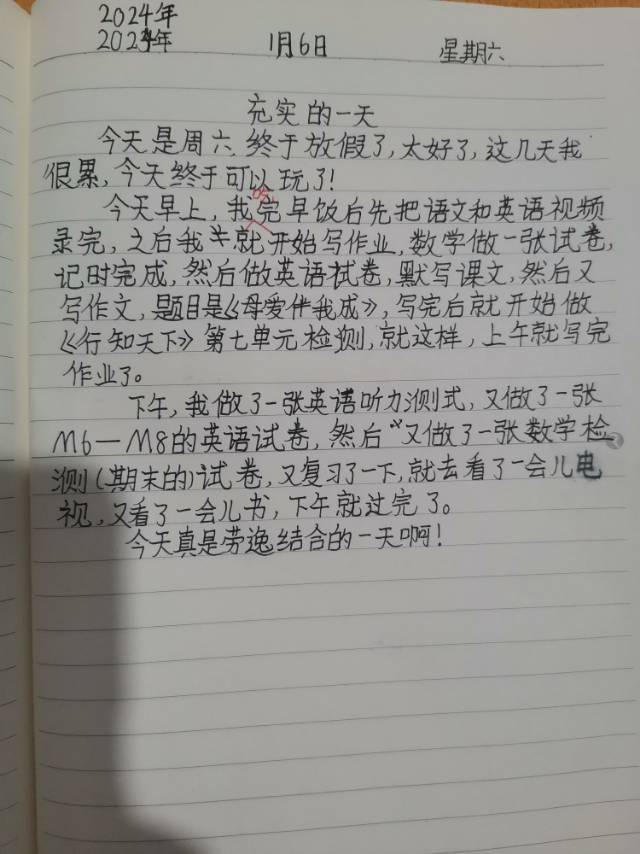 2024年
2023年 1月6日 星期六
充实的一天
今天是周六,终于放假了,太好了,这几天我
很累,今天终于可以玩了!
今天早上,我吃完早饭后先把语文和英语视频
录完,之后我就开始写作业,数学做一张试卷,
记时完成,然后做英语试卷,默写课文,然后又
写作文,题目是《母爱伴我成》,写完后就开始做
《行知天下》第七单元检测,就这样,上午就写完
作业了。
下午,我做了一张英语听力测式,又做了一张
M6—M8的英语试卷,然后又做了一张数学检
测(期末的)试卷,又复习了一下,就去看了一会儿电
视,又看了一会儿书,下午就过完了。
今天真是劳逸结合的一天啊!